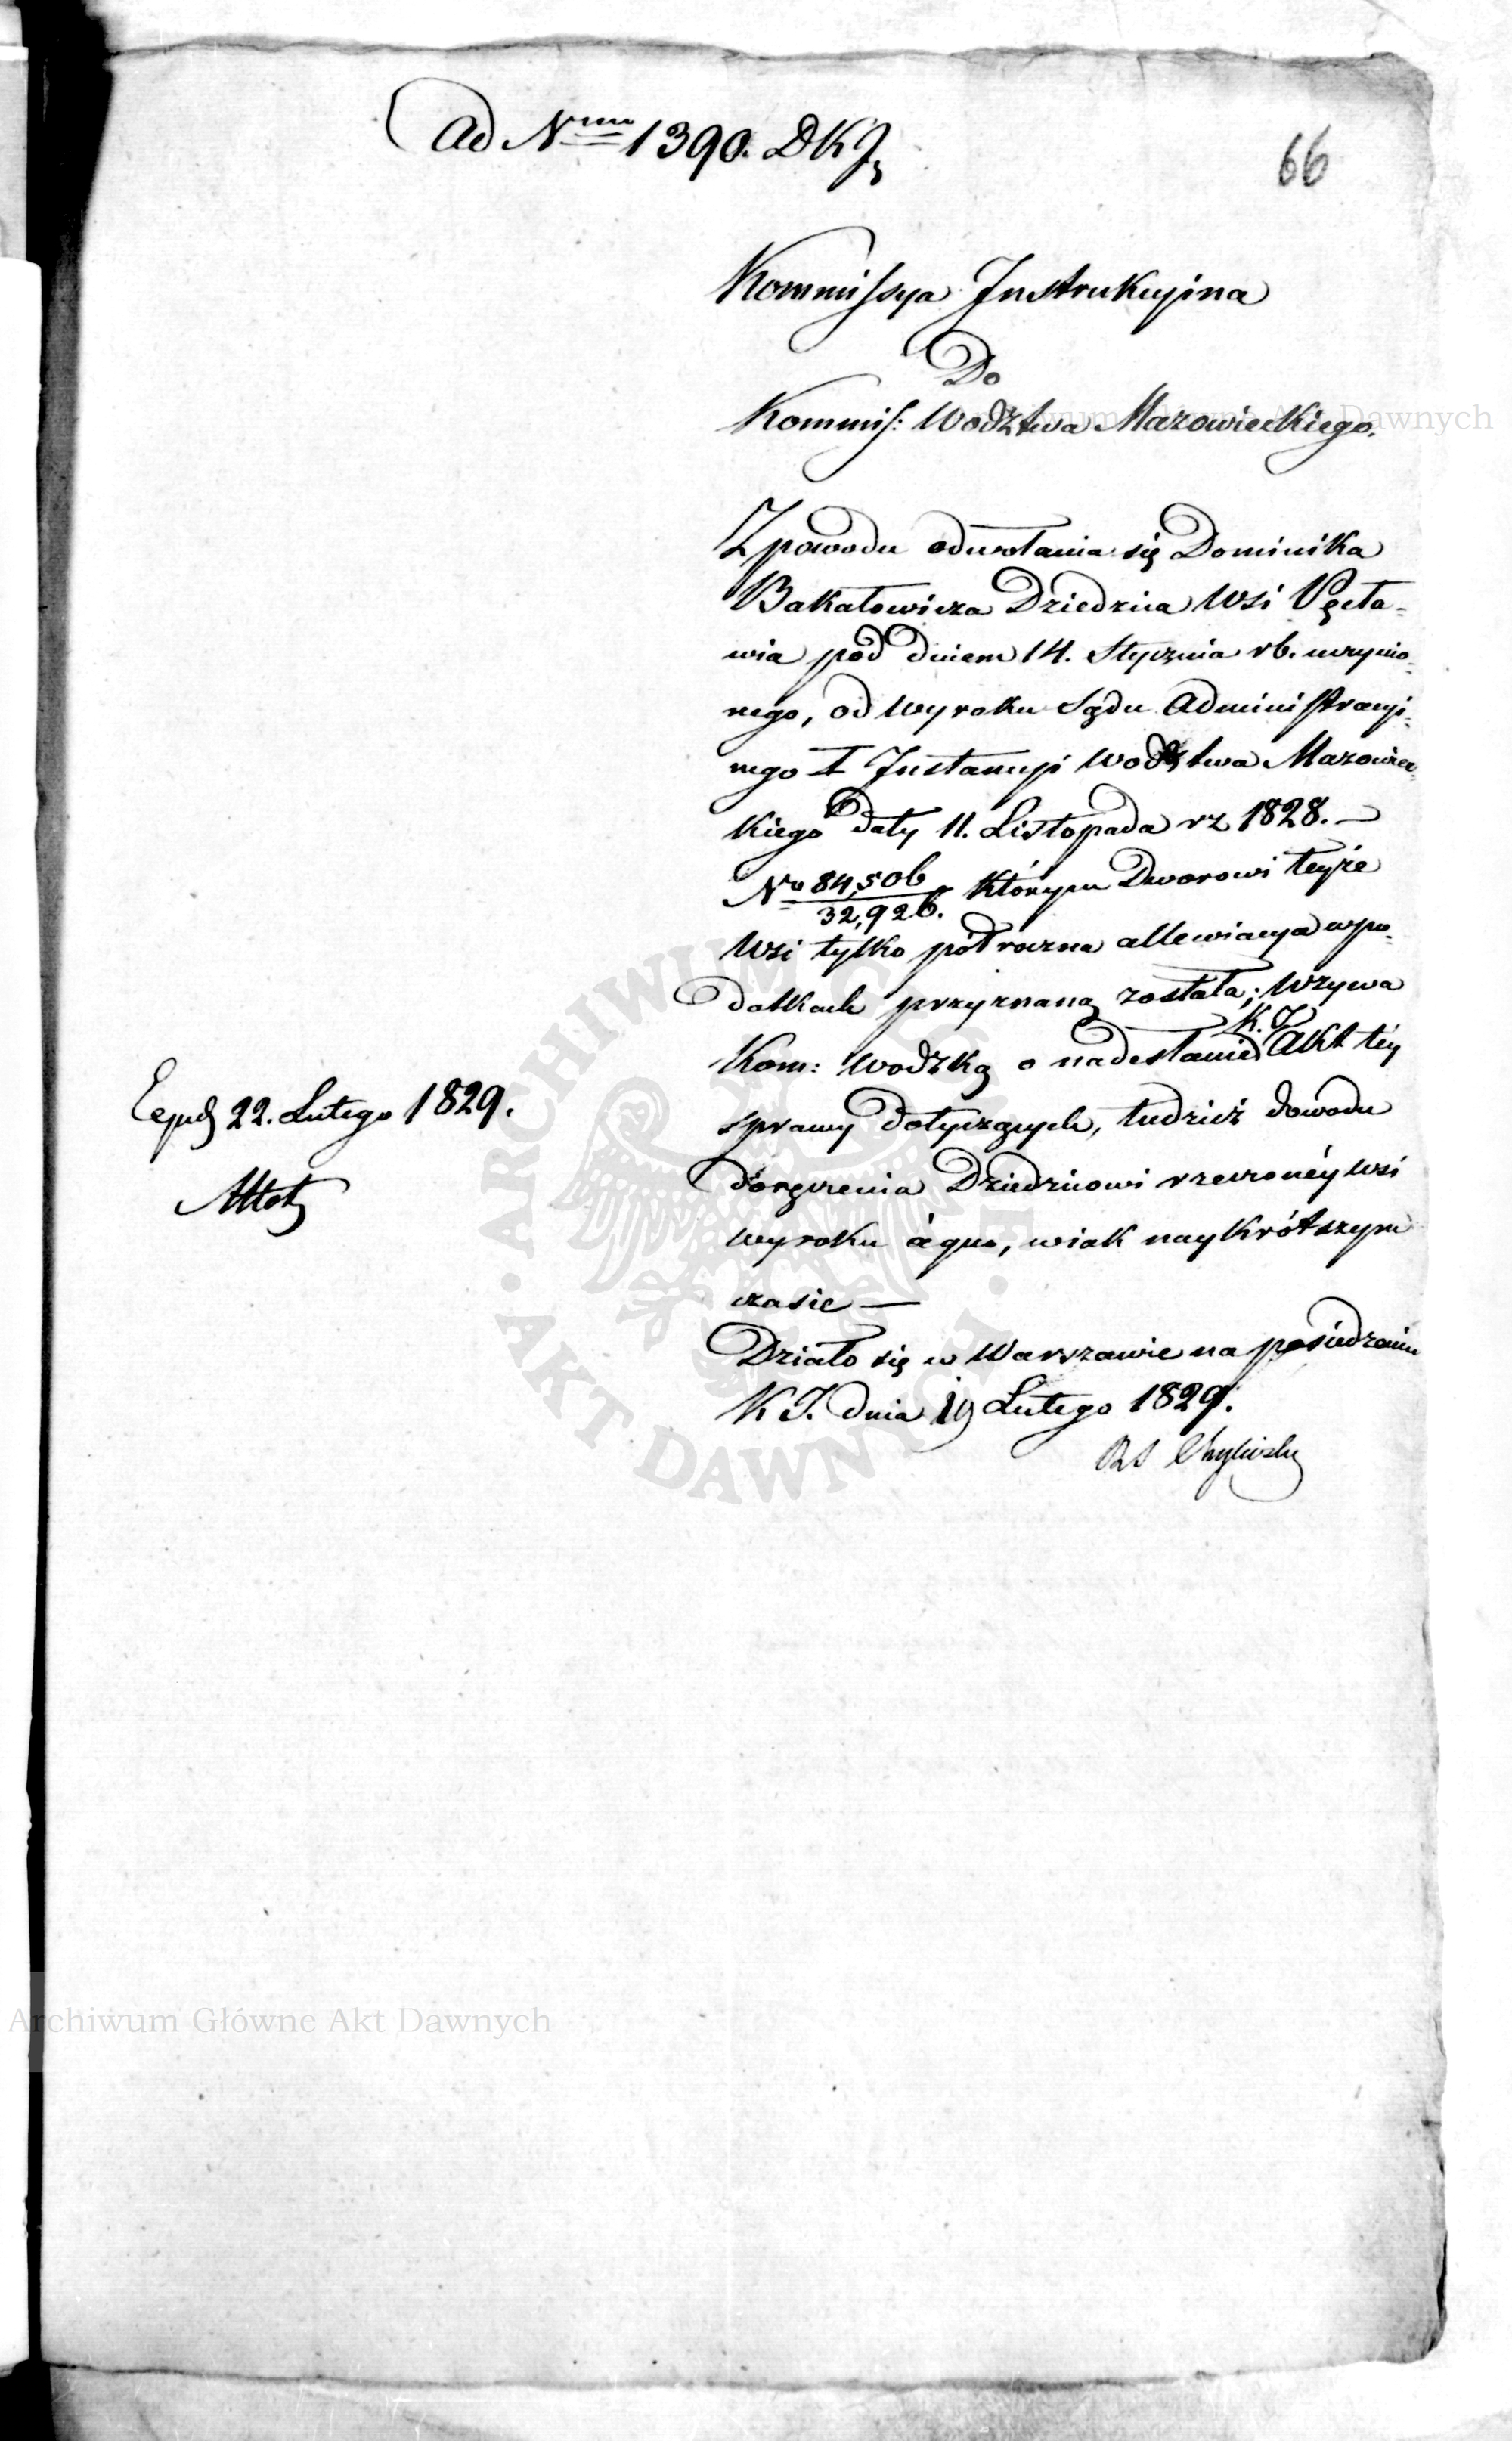 Ad Nrum 1390. DKJ
66
Kommissya Instrukcyina
Do
Kommis: Wodztwa Mazowieckiego.
Z powodu odwołania się Dominika
Bakałowicza Dziedzica Wsi
pod dniem 14. Stycznia rb. uczynio-
nego, od wyroku Sądu Administracyi-
nego I Instancyi Wodztwa Mazowiec-
kiego daty 11. Listopada rz 1828. —
No 84,506
32,926. którym Dworowi teyże
Wsi tylko półroczna allewiacya w po-
datkach przyznaną została; wzywa
K. J.
Kom: Wodzką o nadesłanie Akt téy
sprawy dotyczących, tudzież dowodu
doręczenia Dziedzicowi rzeczonéy wsi
wyroku à quo, w iak naykrótszym
czasie —
Działo się w Warszawie na posiedzeniu
K J. dnia 19 Lutego 1829.
22. Lutego 1829.
Archiwum Główne Akt Dawnych
Archiwum Główne Akt Dawnych
ARCHIWUM GŁÓWNE
AKT DAWNYCH